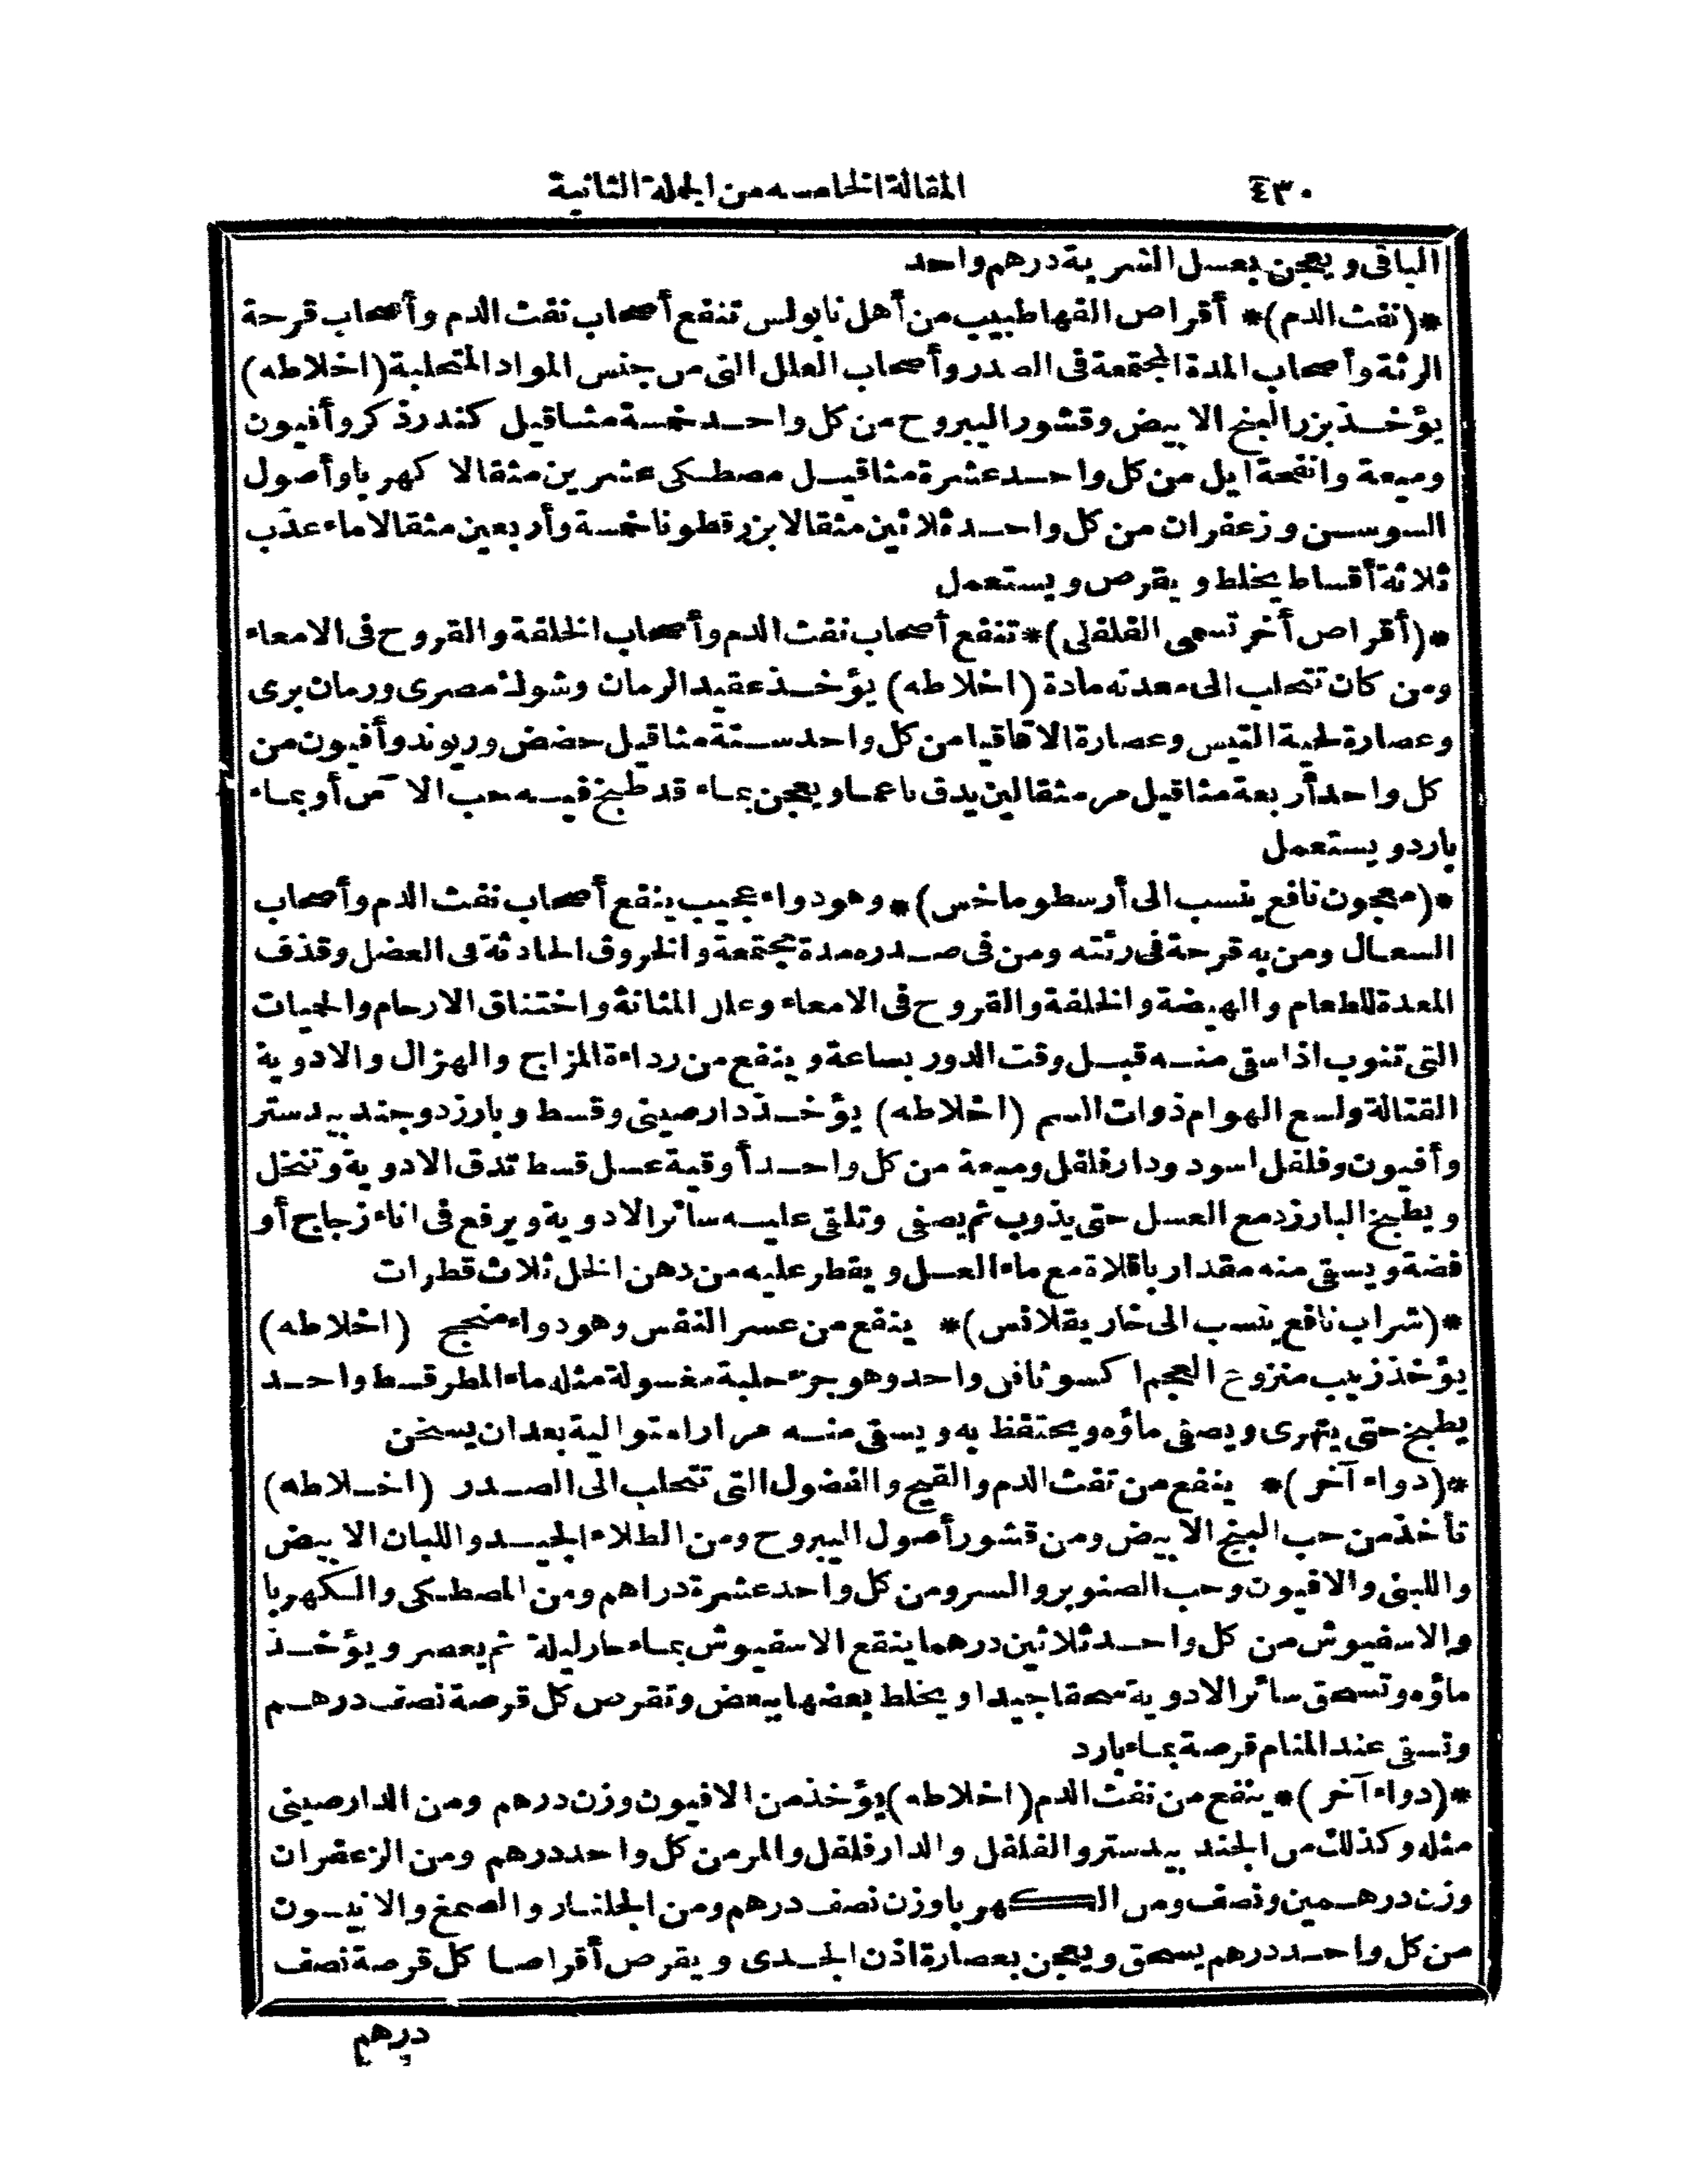 ٤٣٠
المقالة الخامسه من الجملة الثانية
الباقى ويعجن بعسل الشربة درهم واحد
*(نفث الدم)* أقراص القها طبيب من أهل نابولس تنفع أصحاب نفث الدم وأصحاب قرحة
الرئة وأصحاب المدة المجتمعة فى الصدر وأصحاب العلل التى من جنس المواد المتحلبة (اخلاطه)
يؤخذ بزر البنج الابيض وقشور اليبروح من كل واحد خمسة مثاقيل كندر ذكر وأفيون
وميعة وانفحة ايل من كل واحد عشرة مثاقيل مصطكى عشرين مثقالا كهربا وأصول
السوسن وزعفران من كل واحد ثلاثين مثقالا بزرقطونا خمسة وأربعين مثقالا ماء عذب
ثلاثة أقساط يخلط ويقرص ويستعمل
*(أقراص أخر تسمى الفلفلى)* تنفع أصحاب نفث الدم وأصحاب الخلفة والقروح فى الامعاء
ومن كان تتحلب الى معدته مادة (اخلاطه) يؤخذ عقيد الرمان وشوك مصرى ورمان برى
وعصارة لحية التيس وعصارة الاقاقيا من كل واحد ستة مثاقيل حضض وريوند وأفيون من
كل واحد أربعة مثاقيل مر مثقالين يدق ناعما ويعجن بماء قد طبخ فيه حب الآس أو بماء
بارد ويستعمل
*(معجون نافع ينسب الى أرسطوماخس)* وهو دواء عجيب ينفع أصحاب نفث الدم وأصحاب
السعال ومن به قرحة فى رئته ومن فى صدره مدة مجتمعة والخروق الحادثة فى العضل وقذف
المعدة للطعام والهيضة والخلفة والقروح فى الامعاء وعلل المثانة واختناق الارحام والحميات
التى تنوب اذا سقى منه قبل وقت الدور بساعة وينفع من رداءة المزاج والهزال والادوية
القتالة ولسع الهوام ذوات السم (اخلاطه) يؤخذ دارصينى وقسط وبارزد وجند بيدستر
وأفيون وفلفل اسود ودارفلفل وميعة من كل واحد أوقية عسل قسط تدق الادوية وتنخل
ويطبخ البارزد مع العسل حتى يذوب ثم يصفى وتلقى عليه سائر الادوية ويرفع فى اناء زجاج أو
فضة ويسقى منه مقدار باقلاة مع ماء العسل ويقطر عليه من دهن الخل ثلاث قطرات
*(شراب نافع ينسب الى خاريقلانس)* ينفع من عسر النفس وهو دواء منجح (اخلاطه)
يؤخذ زبيب منزوع العجم اكسوثافن واحد وهو جزء حلبة مغسولة مثله ماء المطر قسط واحد
يطبخ حتى يتهرى ويصفى ماؤه ويحتفظ به ويسقى منه مرارا متوالية بعد ان يسخن
*(دواء آخر)* ينفع من نفث الدم والقيح والفضول التى تتحلب الى الصدر (اخلاطه)
تأخذ من حب البنج الابيض ومن قشور أصول اليبروح ومن الطلاء الجيد واللبان الابيض
واللبنى والافيون وحب الصنوبر والسرو من كل واحد عشرة دراهم ومن المصطكى والكهربا
والاسفيوش من كل واحد ثلاثين درهما ينقع الاسفيوش بماء حار ليلة ثم يعصر ويؤخذ
ماؤه وتسحق سائر الادوية سحقا جيدا ويخلط بعضها ببعض وتقرص كل قرصة نصف درهم
وتسقى عند المنام قرصة بماء بارد
*(دواء آخر)* ينفع من نفث الدم (اخلاطه) يؤخذ من الافيون وزن درهم ومن الدارصينى
مثله وكذلك من الجند بيدستر والفلفل والدارفلفل والمر من كل واحد درهم ومن الزعفران
وزن درهمين ونصف ومن الكهربا وزن نصف درهم ومن الجلنار والصمغ والانيسون
من كل واحد درهم يسحق ويعجن بعصارة اذن الجدى ويقرص أقراصا كل قرصة نصف
درهم